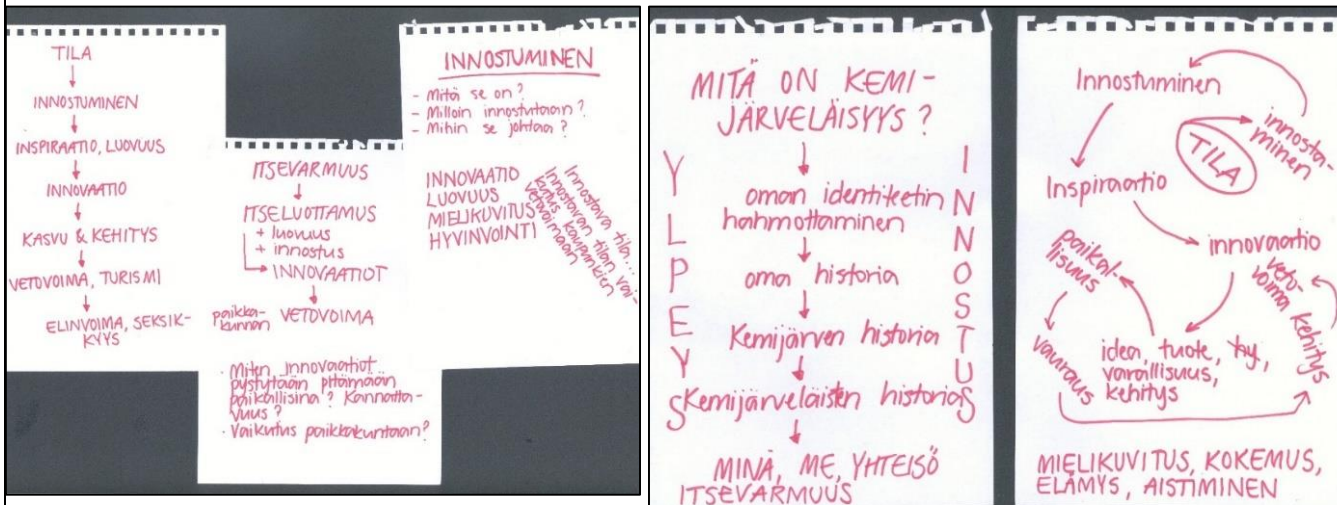 TILA
INNOSTUMINEN
INSPIRAATIO, LUOVUUS
INNOVAATIO
KASVU & KEHITYS
VETOVOIMA, TURISMI
ELINVOIMA, SEKSIK-
KYYS
ITSEVARMUUS
ITSELUOTTAMUS
+ luovuus
+ innostus
INNOVAATIOT
paikka-
kunnan VETOVOIMA
· Miten innovaatiot
pystytään pitämään
paikallisina? Kannatta-
vuus?
· Vaikutus paikkakuntaan?
INNOSTUMINEN
- Mitä se on?
- Milloin innostutaan?
- Mihin se johtaa?
INNOVAATIO
LUOVUUS
MIELIKUVITUS
HYVINVOINTI
Innostava tila...
Innostavan tilan vai-
kutus kaupunkien
vetovoimaan
MITÄ ON KEMI-
JÄRVELÄISYYS?
YLPEYS
oman identiteetin
hahmottaminen
oma historia
Kemijärven historia
Kemijärveläisten historia
MINÄ, ME, YHTEISÖ
ITSEVARMUUS
INNOSTUS
Innostuminen
innosta-
minen
TILA
Inspiraatio
innovaatio
paikal-
lisuus
veto-
voima kehitys
idea, tuote, hy,
varallisuus,
kehitys
vauraus
MIELIKUVITUS, KOKEMUS,
ELÄMYS, AISTIMINEN